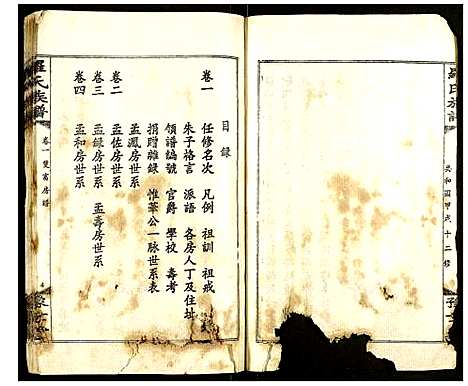 目錄
卷一　任修名次　凡例　祖訓　祖戒
朱子格言　派語　各房人丁及住址
領譜編號　官爵　學校　壽考
捐贈雜錄　惟華公一脉世系表
孟鳳房世系
卷二　孟佐房世系
卷三　孟錄房世系　孟壽房世系
卷四　孟和房世系
羅氏族譜
卷一
羅氏族譜
共和國甲戌十二修